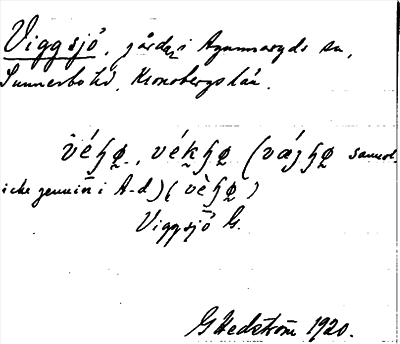 Viggsjö, gård i Agunnaryds sn,
Sunnerbo hd, Kronobergs län.
véhφ, vékhφ (væjhφ sannol.
icke genuin i A-d) (vèhφ)
Viggsjö G.
G Hedström 1920.